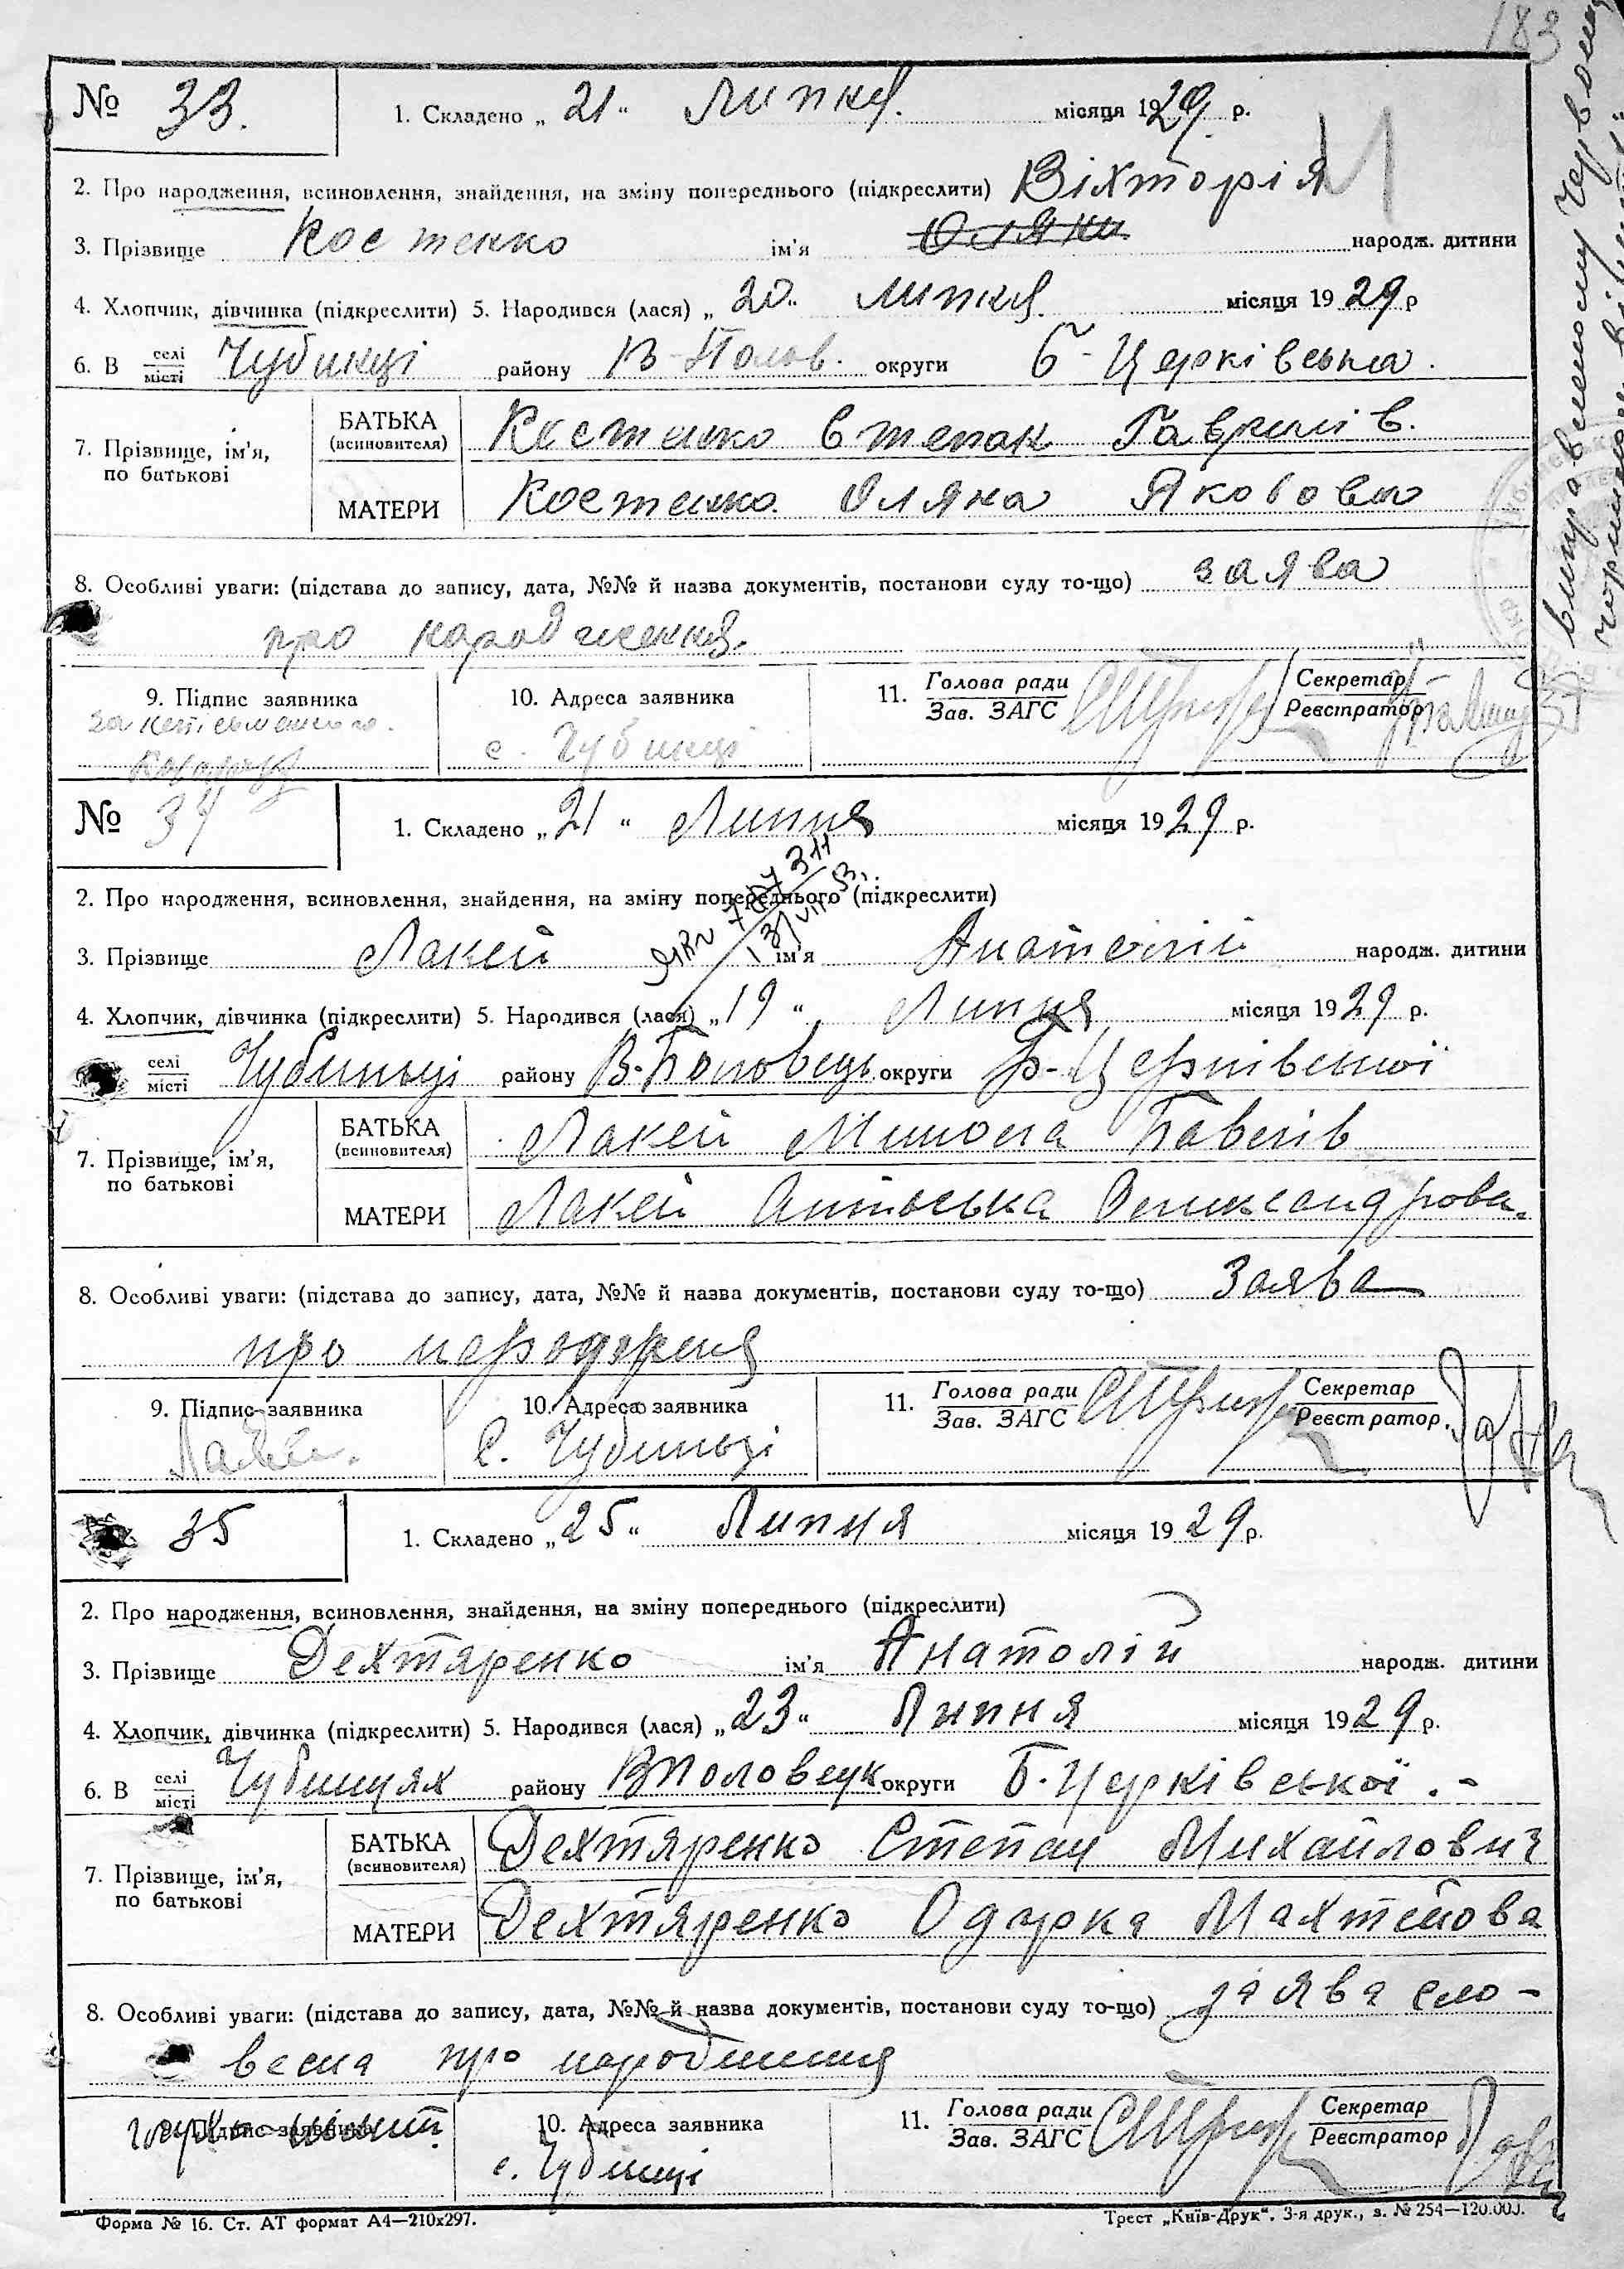 183
№ 33. 1. Складено „ 21 " Липня. місяця 1929 р.
2. Про народження, всиновлення, знайдення, на зміну попереднього (підкреслити) Віхторія
3. Прізвище Костенко ім'я Оляни народж. дитини
4. Хлопчик, дівчинка (підкреслити) 5. Народився (лася) „ 20 " липня. місяця 1929 р
6. В селі/місті Чубинці району В-Полов. округи Б-Церківська.
7. Прізвище, ім'я, по батькові
БАТЬКА (всиновителя) Костенко Степан Гаврилів.
МАТЕРИ Костенко Оляна Яковова
8. Особливі уваги: (підстава до запису, дата, №№ й назва документів, постанови суду то-що) заява
про народження.
9. Підпис заявника 10. Адреса заявника 11. Голова ради/Зав. ЗАГС Секретар/Реєстратор
с. Чубинці
виправленому
№ 34 1. Складено „ 21 " Липня місяця 1929 р.
2. Про народження, всиновлення, знайдення, на зміну попереднього (підкреслити)
3. Прізвище Лакей ім'я Анатолій народж. дитини
4. Хлопчик, дівчинка (підкреслити) 5. Народився (лася) „ 19 " Липня місяця 1929 р.
селі/місті Чубиньці району В-Половець. округи Б-Церківської
7. Прізвище, ім'я, по батькові
БАТЬКА (всиновителя) Лакей Микола Павлів
МАТЕРИ Лакей Антоська Олександрова.
8. Особливі уваги: (підстава до запису, дата, №№ й назва документів, постанови суду то-що) Заява
про
9. Підпис заявника 10. Адреса заявника 11. Голова ради/Зав. ЗАГС Секретар/Реєстратор.
Лакей. с. Чубиньці
35 1. Складено „ 25 " Липня місяця 1929 р.
2. Про народження, всиновлення, знайдення, на зміну попереднього (підкреслити)
3. Прізвище Дехтяренко ім'я Анатолій народж. дитини
4. Хлопчик, дівчинка (підкреслити) 5. Народився (лася) „ 23 " Липня місяця 1929 р.
6. В селі/місті Чубинцях району ВПоловецьк округи Б. Церківської. -
7. Прізвище, ім'я, по батькові
БАТЬКА (всиновителя) Дехтяренко Степан Михайлович
МАТЕРИ Дехтяренко Одарка Махтейова
8. Особливі уваги: (підстава до запису, дата, №№ й назва документів, постанови суду то-що) заява сло-
весна про народження
Підпис заявника 10. Адреса заявника 11. Голова ради/Зав. ЗАГС Секретар/Реєстратор
с. Чубинці
Форма № 16. Ст. АТ формат А4—210х297. Трест „Київ-Друк". 3-я друк., з. № 254—120.000.